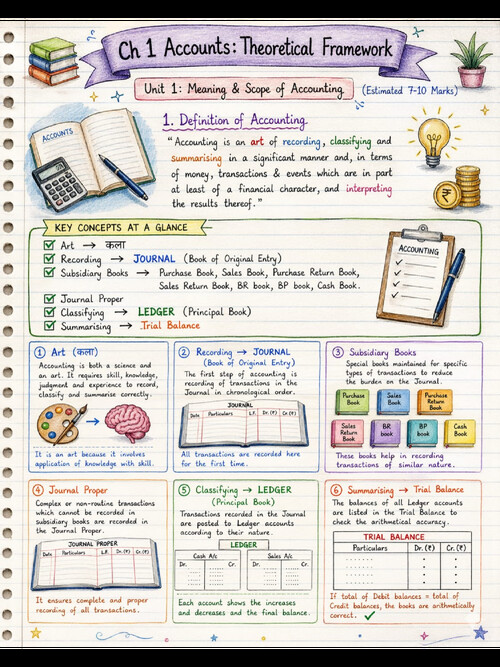 Ch 1 Accounts: Theoretical Framework
Unit 1: Meaning & Scope of Accounting
(Estimated 7-10 Marks)
ACCOUNTS
1. Definition of Accounting
"Accounting is an art of recording, classifying and
summarising in a significant manner and, in terms
of money, transactions & events which are in part
at least of a financial character, and interpreting
the results thereof."
₹
KEY CONCEPTS AT A GLANCE
Art → कला
Recording → JOURNAL (Book of Original Entry)
Subsidiary Books → Purchase Book, Sales Book, Purchase Return Book,
Sales Return Book, BR book, BP book, Cash Book.
Journal Proper
Classifying → LEDGER (Principal Book)
Summarising → Trial Balance
ACCOUNTING
1 Art (कला)
Accounting is both a science and
an art. It requires skill, knowledge,
judgment and experience to record,
classify and summarise correctly.
It is an art because it involves
application of knowledge with skill.
2 Recording → JOURNAL
(Book of Original Entry)
The first step of accounting is
recording of transactions in the
Journal in chronological order.
JOURNAL
Date Particulars L.F. Dr. (₹) Cr. (₹)
All transactions are recorded here
for the first time.
3 Subsidiary Books
Special books maintained for specific
types of transactions to reduce
the burden on the Journal.
Purchase Book
Sales Book
Purchase Return Book
Sales Return Book
BR book
BP book
Cash Book
These books help in recording
transactions of similar nature.
4 Journal Proper
Complex or non-routine transactions
which cannot be recorded in
subsidiary books are recorded in
the Journal Proper.
JOURNAL PROPER
Date Particulars L.F. Dr. (₹) Cr. (₹)
It ensures complete and proper
recording of all transactions.
5 Classifying → LEDGER
(Principal Book)
Transactions recorded in the Journal
are posted to Ledger accounts
according to their nature.
LEDGER
Cash A/c
Dr. Cr.
Sales A/c
Dr. Cr.
Each account shows the increases
and decreases and the final balance.
6 Summarising → Trial Balance
The balances of all Ledger accounts
are listed in the Trial Balance to
check the arithmetical accuracy.
TRIAL BALANCE
Particulars Dr. (₹) Cr. (₹)
If total of Debit balances = total of
Credit balances, the books are arithmetically
correct.